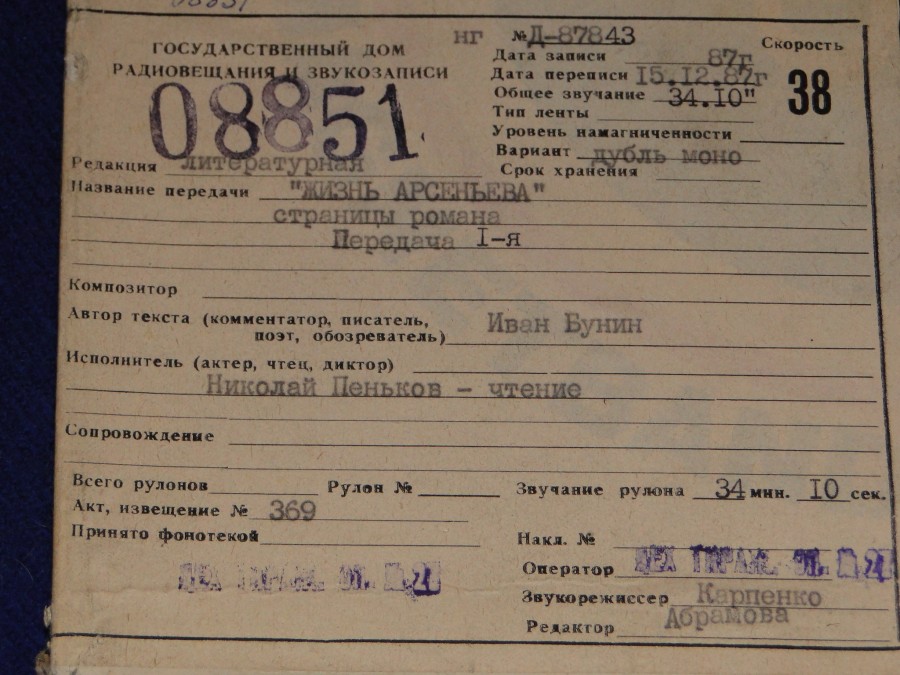 08851
ГОСУДАРСТВЕННЫЙ ДОМ
РАДИОВЕЩАНИЯ И ЗВУКОЗАПИСИ
08851
нг №Д-87843
Дата записи 87г
Дата переписи 15.12.87г
Общее звучание 34.10"
Тип ленты
Уровень намагниченности
Вариант дубль моно
Срок хранения
Скорость
38
Редакция литературная
Название передачи "ЖИЗНЬ АРСЕНЬЕВА"
страницы романа
Передача I-я
Композитор
Автор текста (комментатор, писатель,
поэт, обозреватель) Иван Бунин
Исполнитель (актер, чтец, диктор)
Николай Пеньков - чтение
Сопровождение
Всего рулонов Рулон № Звучание рулона 34 мин. 10 сек.
Акт, извещение № 369
Принято фонотекой
Накл. №
Оператор
Звукорежиссер Карпенко
Редактор Абрамова